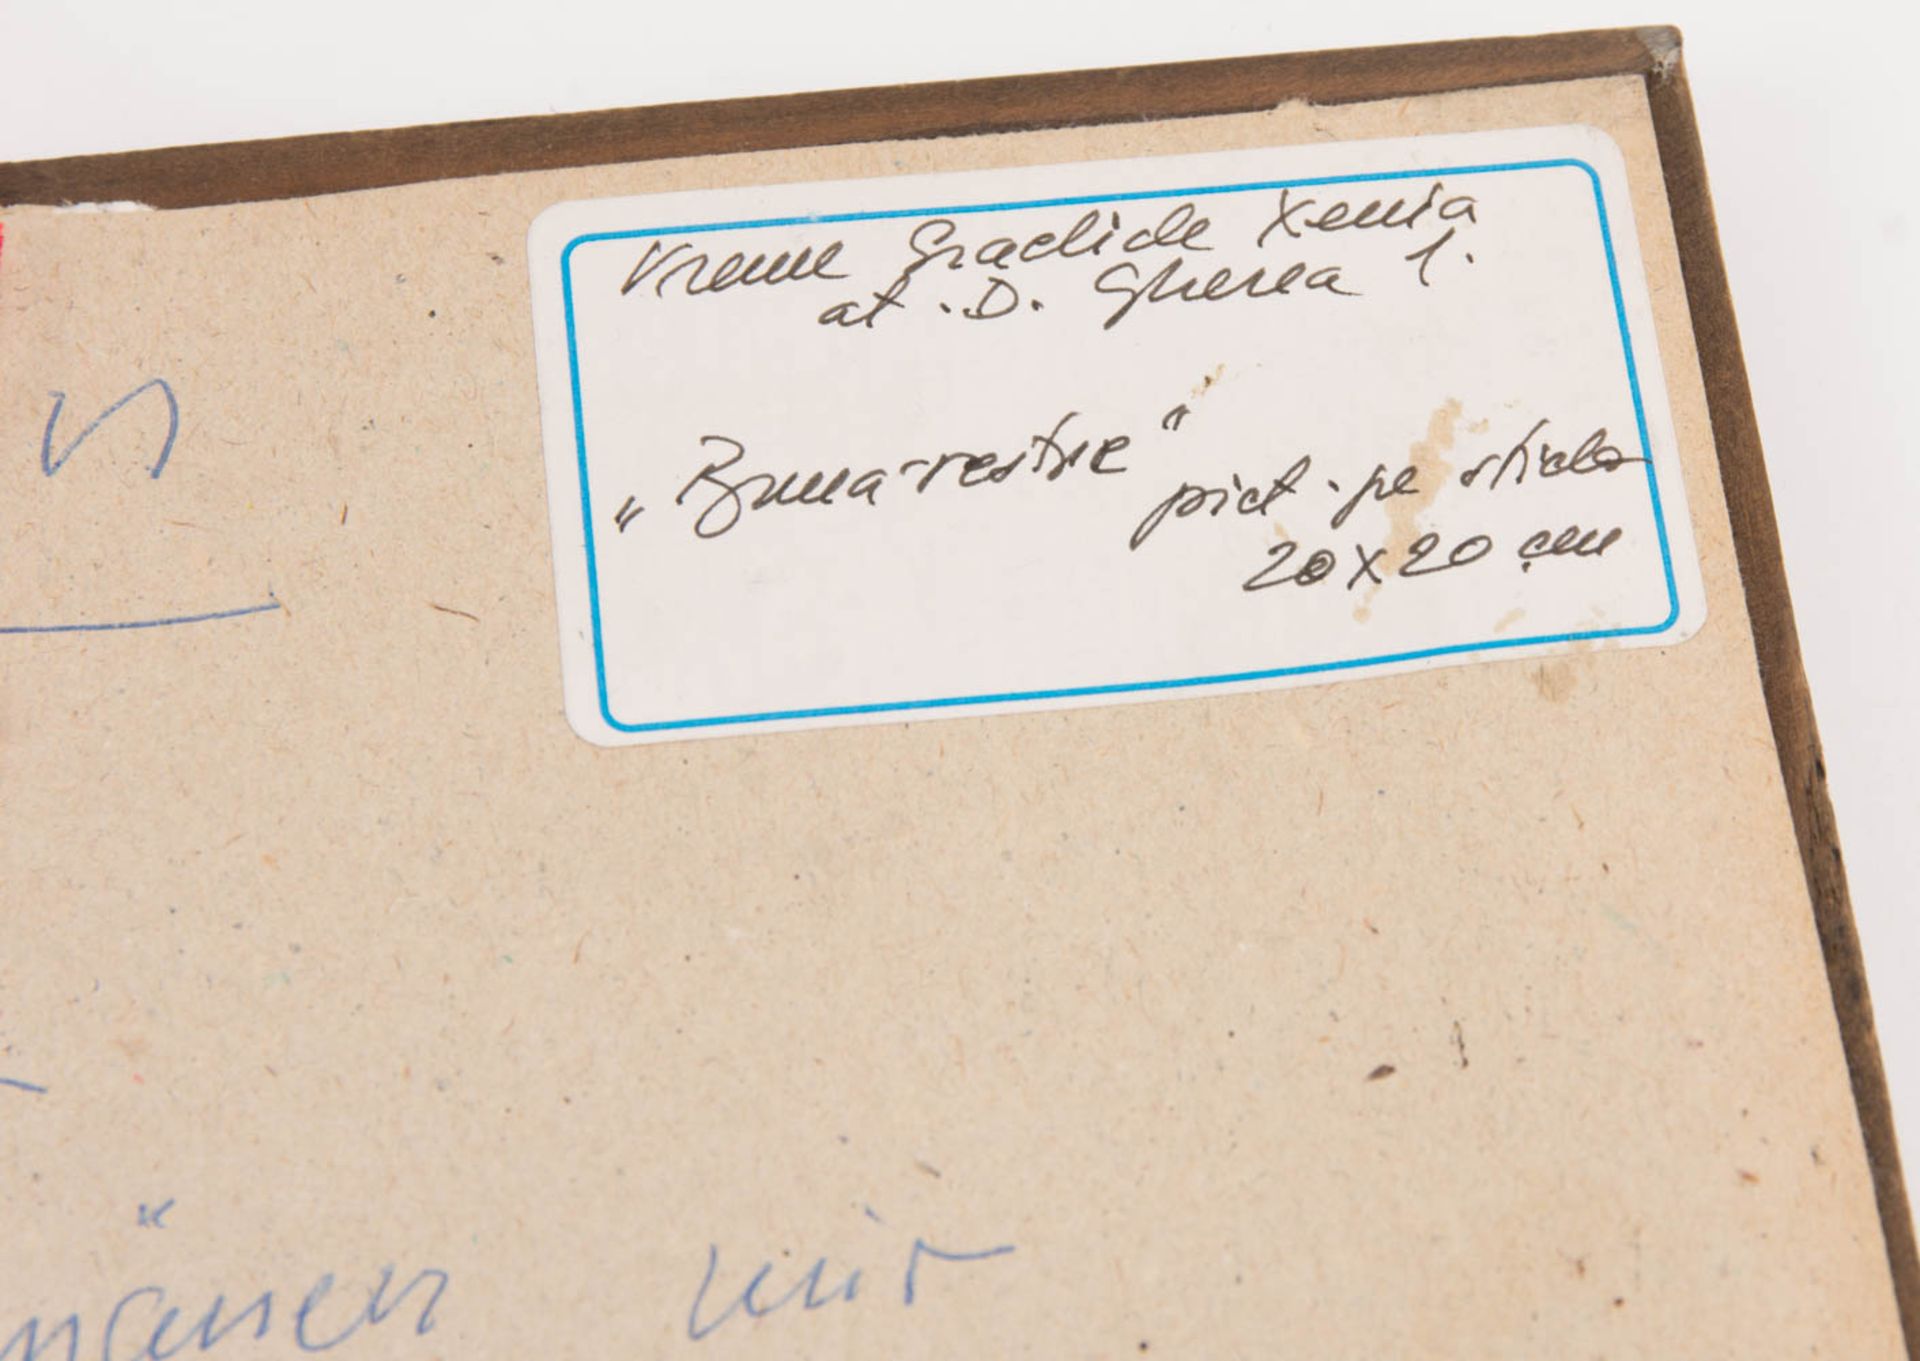 Vreme Eraclide Xenia
at. D. Gherea 1.
„Buna-vestire"
pict. pe sticla
20x20 cm
mit